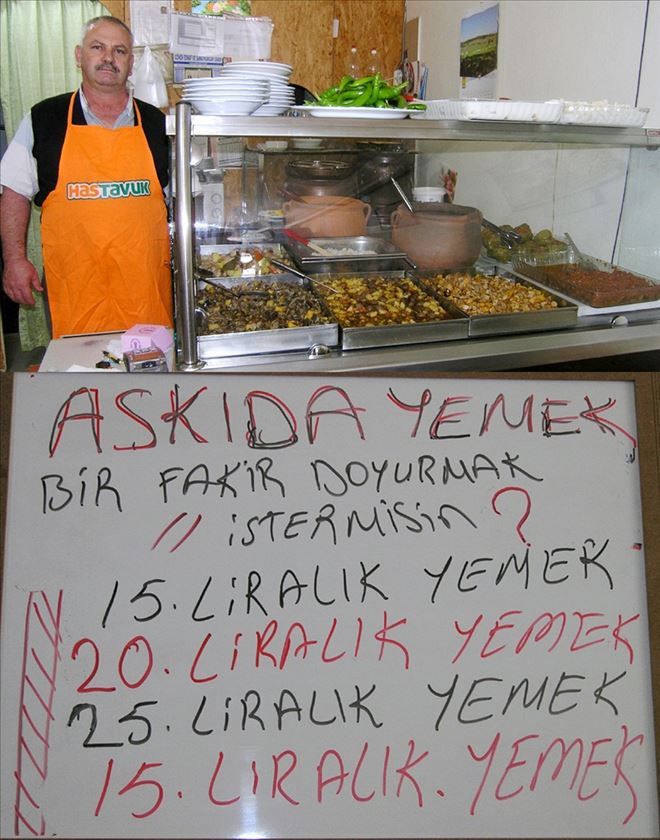 HASTAVUK
ASKIDA YEMEK
BİR FAKİR DOYURMAK
〃 İSTERMİSİN ?
15. LİRALIK YEMEK
20. LİRALIK YEMEK
25. LİRALIK YEMEK
15. LİRALIK. YEMEK